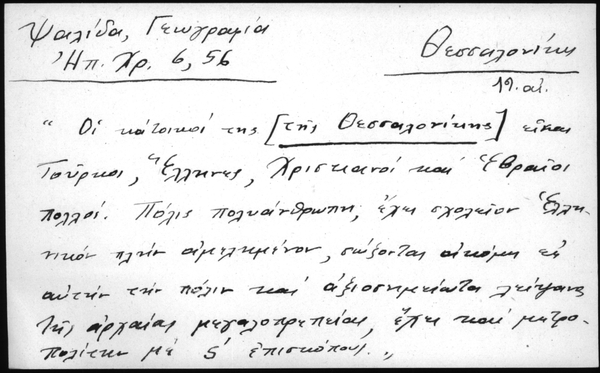 Ψαλίδα, Γεωγραφία
Ἠπ. Χρ. 6, 56
Θεσσαλονίκη
19. αἰ.
"Οἱ κάτοικοί της [τῆς Θεσσαλονίκης] εἶναι
Τοῦρκοι, Ἕλληνες, Χριστιανοί καί Ἑβραῖοι
πολλοί. Πόλις πολυάνθρωπη, ἔχει σχολεῖον Ἑλλη-
νικόν πλήν ἀμελημένον, σώζονται ἀκόμη εἰς
αὐτήν τήν πόλιν καί ἀξιοσημείωτα λείψανα
τῆς ἀρχαίας μεγαλοπρεπείας, ἔχει καί μητρο-
πολίτην μέ ς' ἐπισκόπους."